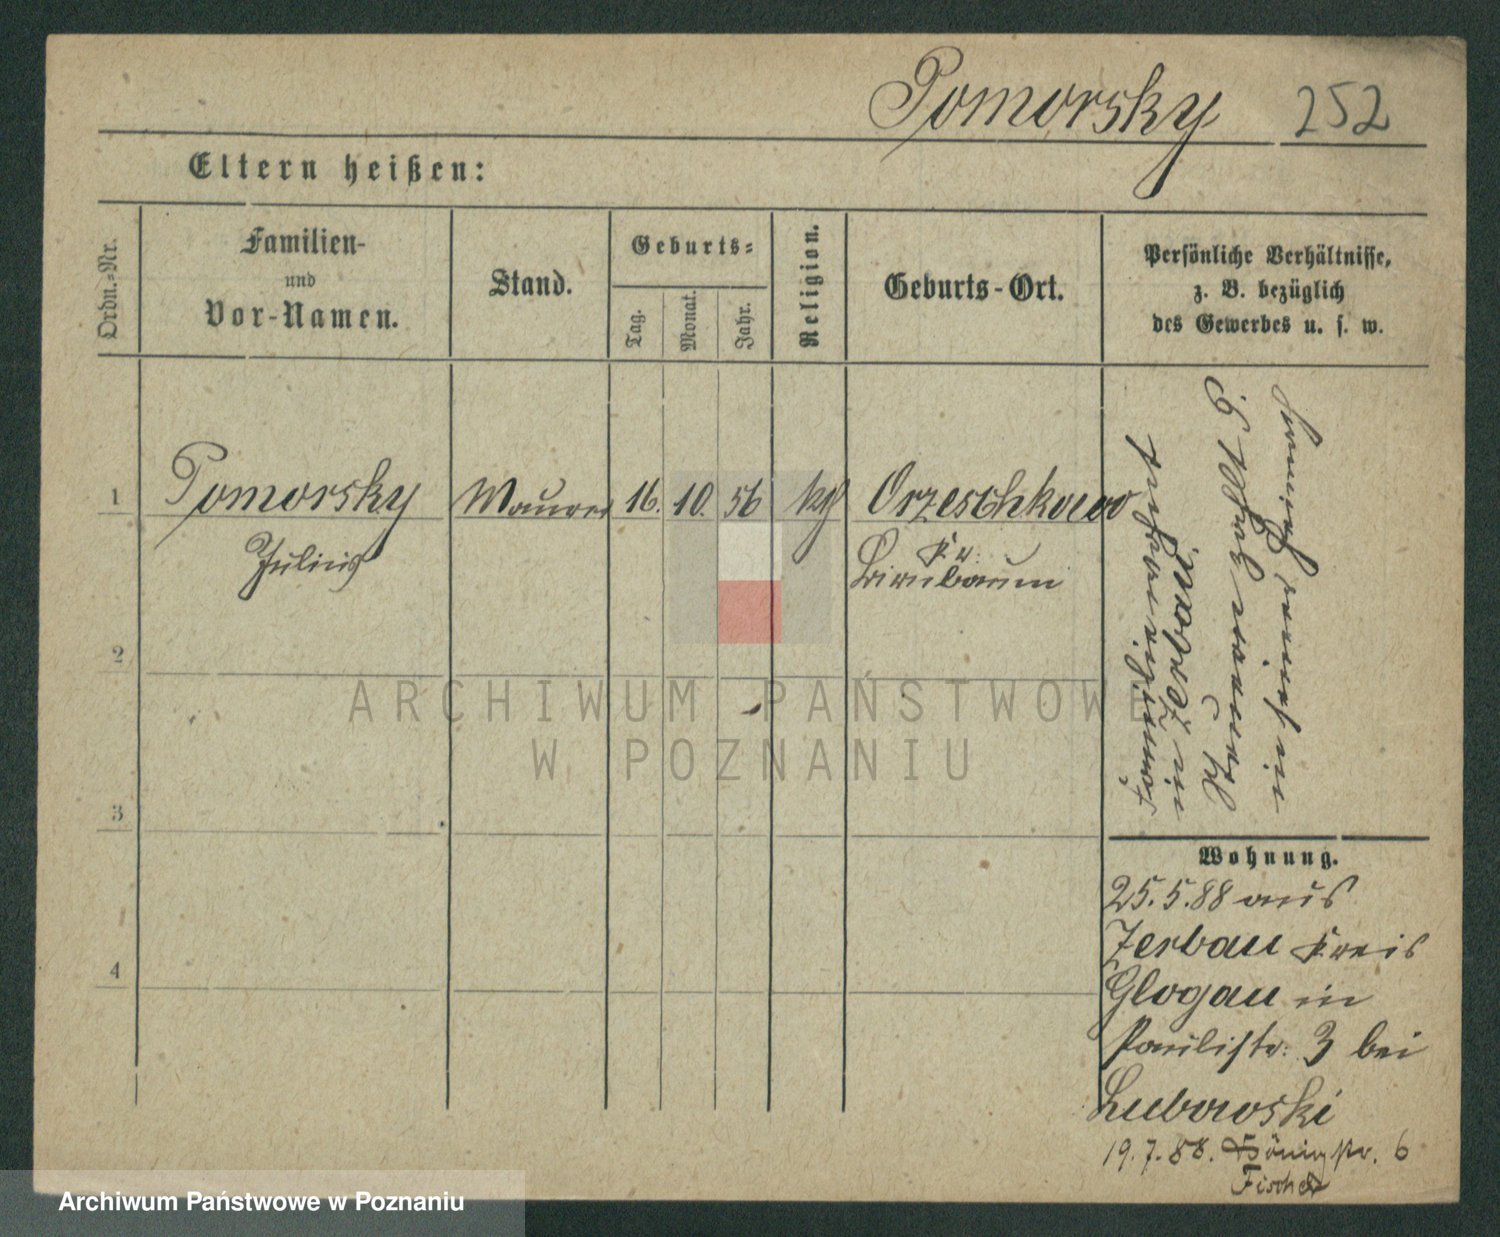 Pomorsky 252
Eltern heißen:
Ordn.-Nr.
Familien-
und
Vor-Namen.
Stand.
Geburts-
Tag.
Monat.
Jahr.
Religion.
Geburts-Ort.
Persönliche Verhältnisse,
z. B. bezüglich
des Gewerbes u. s. w.
1 Pomorsky Maurer 16. 10. 56 kth Orzeschkowo
Julius
Kr.
Birnbaum
2
3
4
in
in Zerbau
Wohnung.
25.5.88 aus
Zerbau Kreis
Glogau in
Paulistr. 3 bei
Lubowski
19.7.88. Königstr. 6
Fischer
ARCHIWUM PAŃSTWOWE
W POZNANIU
Archiwum Państwowe w Poznaniu